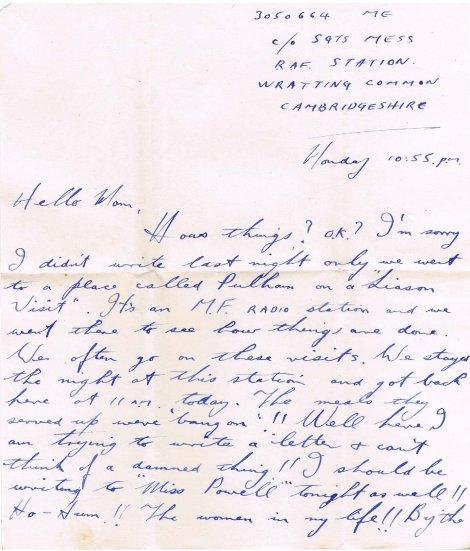 3050664 ME
c/o SGTS MESS
RAF. STATION.
WRATTING COMMON
CAMBRIDGESHIRE
Monday 10.55. p.m.
Hello Mom,
Hows things? O.K? I'm sorry
I didn't write last night only we went
to a place called Pulham on a "Liason
Visit". It's an M.F. RADIO station and we
went there to see how things are done.
We often go on these visits. We stayed
the night at this station and got back
here at 11 AM. today. The meals they
served up were "bang on"!! Well here I
am trying to write a letter & can't
think of a damned thing!! I should be
writing to "Miss Powell" tonight as well!!
Ho-Hum!! The women in my life!! By the